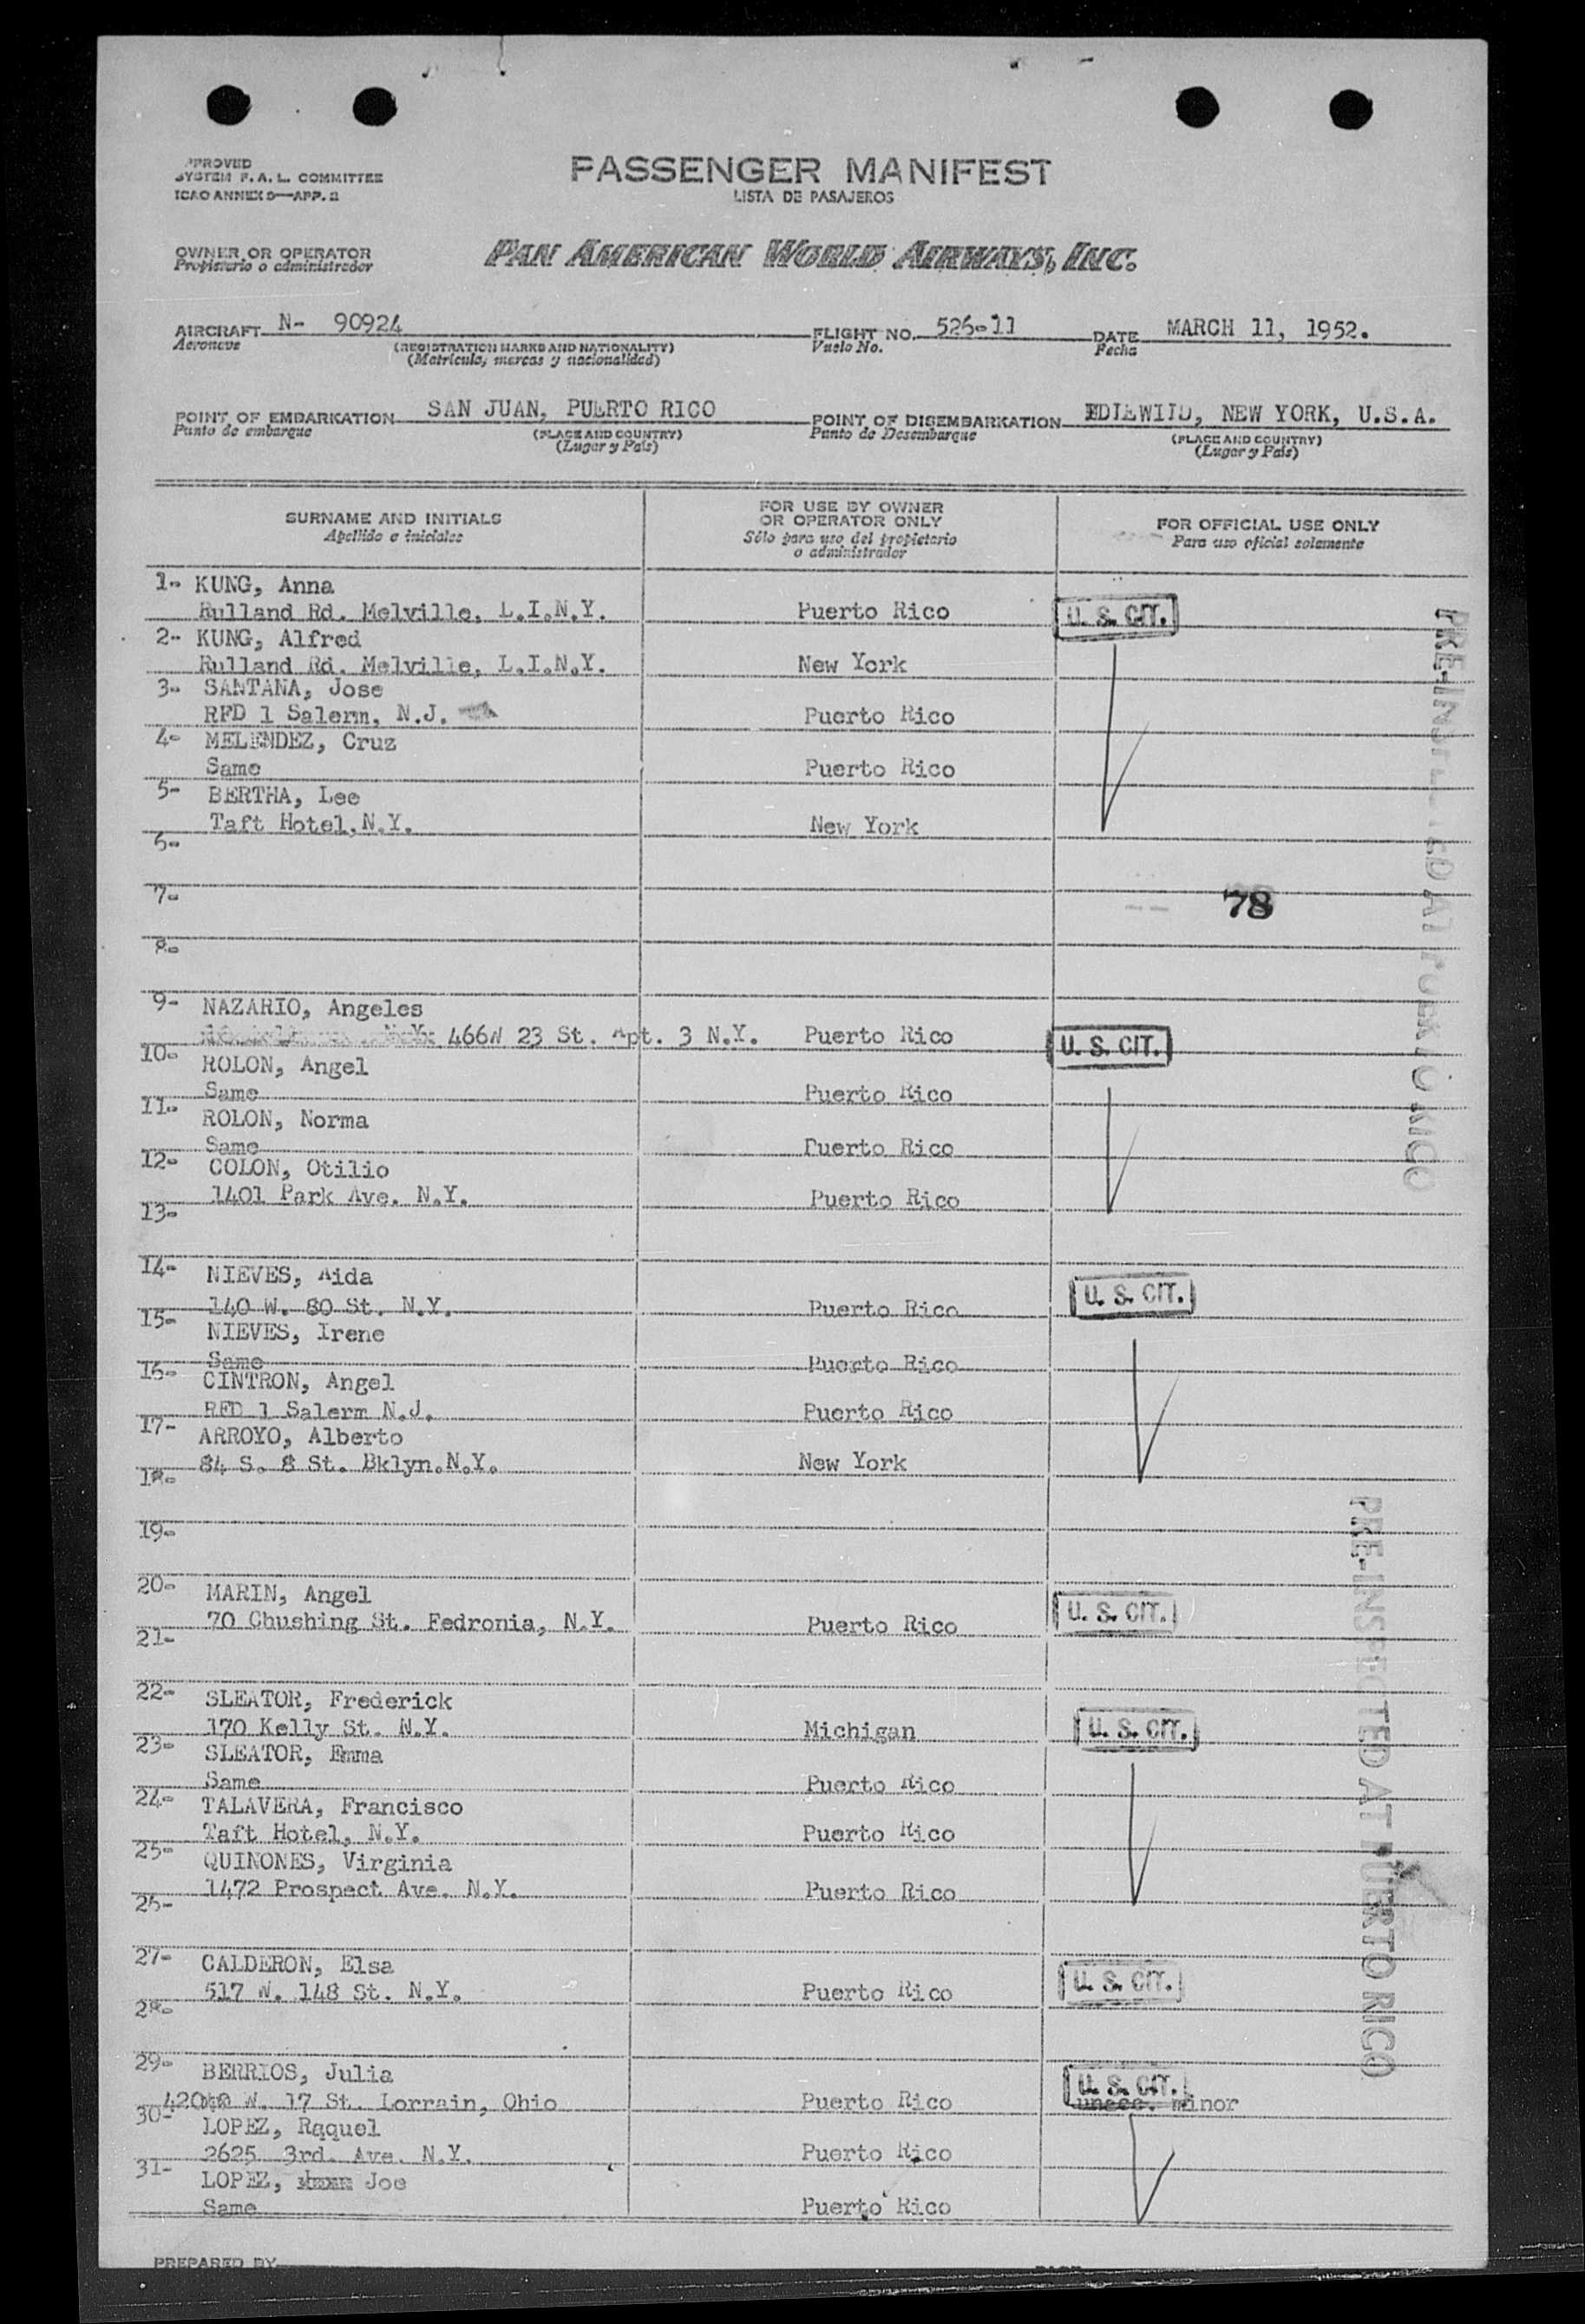 PPROVED
SYSTEM F. A. L. COMMITTEE
ICAO ANNEX 9—APP. 2
PASSENGER MANIFEST
LISTA DE PASAJEROS
OWNER OR OPERATOR
Propietario o administrador
PAN AMERICAN WORLD AIRWAYS, INC.
AIRCRAFT N- 90924
Aeronave
(REGISTRATION MARKS AND NATIONALITY)
(Matrícula, marcas y nacionalidad)
FLIGHT NO. 526-11
Vuelo No.
DATE MARCH 11, 1952.
Fecha
POINT OF EMBARKATION SAN JUAN, PUERTO RICO
Punto de embarque
(PLACE AND COUNTRY)
(Lugar y País)
POINT OF DISEMBARKATION EDILWIID, NEW YORK, U.S.A.
Punto de Desembarque
(PLACE AND COUNTRY)
(Lugar y País)
SURNAME AND INITIALS
Apellido e iniciales
FOR USE BY OWNER
OR OPERATOR ONLY
Sólo para uso del propietario
o administrador
FOR OFFICIAL USE ONLY
Para uso oficial solamente
1- KUNG, Anna
Rulland Rd. Melville, L.I.N.Y. Puerto Rico U. S. CIT.
2- KUNG, Alfred
Rulland Rd. Melville, L.I.N.Y. New York
3- SANTANA, Jose
RFD 1 Salerm, N.J. Puerto Rico
4- MELENDEZ, Cruz
Same Puerto Rico
5- BERTHA, Lee
Taft Hotel, N.Y. New York
6-
7- 78
8-
9- NAZARIO, Angeles
466W 23 St. Apt. 3 N.Y. Puerto Rico U. S. CIT.
10- ROLON, Angel
Same Puerto Rico
11- ROLON, Norma
Same Puerto Rico
12- COLON, Otilio
1401 Park Ave. N.Y. Puerto Rico
13-
14- NIEVES, Aida
140 W. 80 St. N.Y. Puerto Rico U. S. CIT.
15- NIEVES, Irene
Same Puerto Rico
16- CINTRON, Angel
RFD 1 Salerm N.J. Puerto Rico
17- ARROYO, Alberto
84 S. 8 St. Bklyn.N.Y. New York
18-
19-
20- MARIN, Angel
70 Chushing St. Fedronia, N.Y. Puerto Rico U. S. CIT.
21-
22- SLEATOR, Frederick
170 Kelly St. N.Y. Michigan U. S. CIT.
23- SLEATOR, Emma
Same Puerto Rico
24- TALAVERA, Francisco
Taft Hotel, N.Y. Puerto Rico
25- QUINONES, Virginia
1472 Prospect Ave. N.Y. Puerto Rico
26-
27- CALDERON, Elsa
517 W. 148 St. N.Y. Puerto Rico U. S. CIT.
28-
29- BERRIOS, Julia
420 W. 17 St. Lorrain, Ohio Puerto Rico U. S. CIT.
unacc. minor
30- LOPEZ, Raquel
2625 3rd. Ave. N.Y. Puerto Rico
31- LOPEZ, Joe
Same Puerto Rico
PRE-INSPECTED AT PUERTO RICO
PRE-INSPECTED AT PUERTO RICO
PREPARED BY